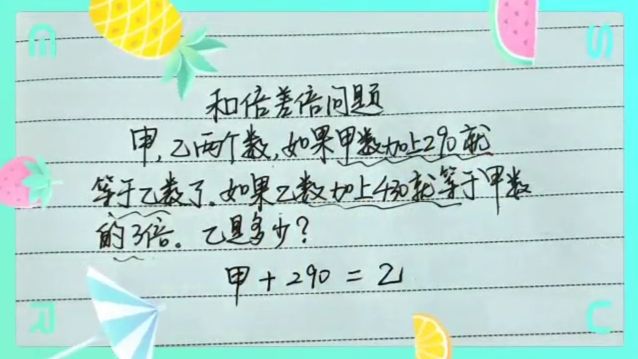 和倍差倍问题
甲,乙两个数,如果甲数加上290就
等于乙数了.如果乙数加上430就等于甲数
的3倍。乙是多少?
甲+290=乙